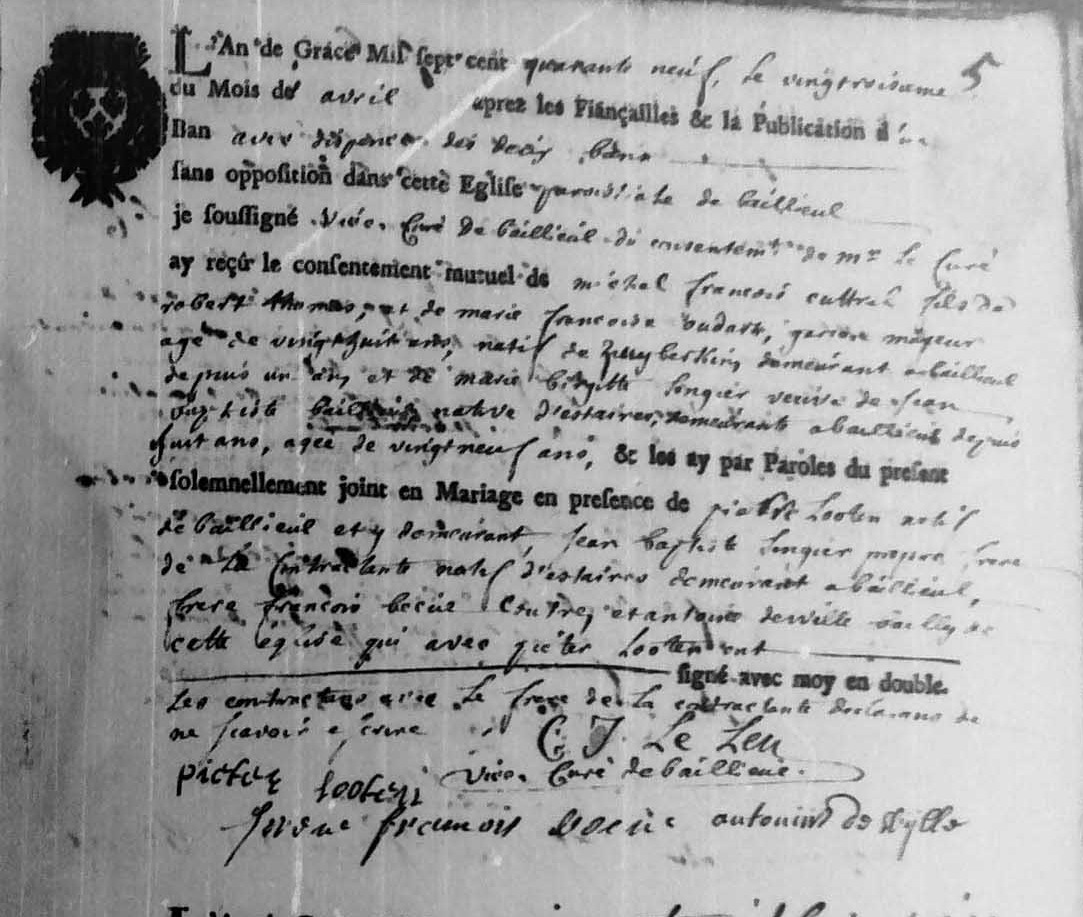 5
L'An de Grace Mil sept cent quarante neuf, le vingtroisieme
du Mois de avril aprez les Fiançailles & la Publication d'un
Ban avec dispence des deux bans
sans opposition dans cette Eglise paroissiale de bailleul
je soussigné Vice-Curé de bailleul du consentemt de mr le Curé
ay reçû le consentement mutuel de michel francois fils de
robert thomas, et de marie francoise oudart, garçon majeur
agé de vingthuit ans, natif de demeurant a bailleul
depuis un an, et de marie brigitte veuve de jean
baptiste native d'estaires, demeurante a bailleul depuis
huit ans, agée de vingtneuf ans, & les ay par Paroles du present
solemnellement joint en Mariage en presence de pieter Looten natif
de baillieul et y demeurant, jean baptiste propre frere
de La Contractante natif d'estaires demeurant a bailleul,
francois becue et antoine deville bailly de
cette église qui avec pieter Looten ont
signé avec moy en double.
Les contractans avec Le frere de La contractante declarans ne
ne scavoir escrire C J Le Leu
Vice-Curé de baillieul.
pieter looten
francois becue